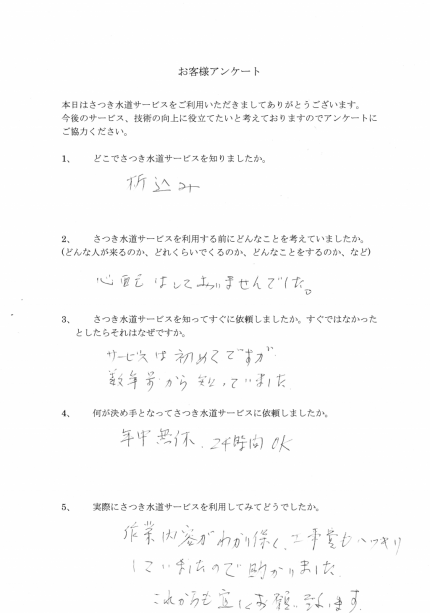 お客様アンケート
本日はさつき水道サービスをご利用いただきましてありがとうございます。
今後のサービス、技術の向上に役立てたいと考えておりますのでアンケートに
ご協力ください。
1、 どこでさつき水道サービスを知りましたか。
折込み
2、 さつき水道サービスを利用する前にどんなことを考えていましたか。
(どんな人が来るのか、どれくらいでくるのか、どんなことをするのか、など)
心配はしておりませんでした。
3、 さつき水道サービスを知ってすぐに依頼しましたか。すぐではなかった
としたらそれはなぜですか。
サービスは初めてですが
数年前から知っていました
4、 何が決め手となってさつき水道サービスに依頼しましたか。
年中無休、24時間OK
5、 実際にさつき水道サービスを利用してみてどうでしたか。
作業内容がわかり易く、工事費もハッキリ
していましたので助かりました
これからも宜しくお願い致します。